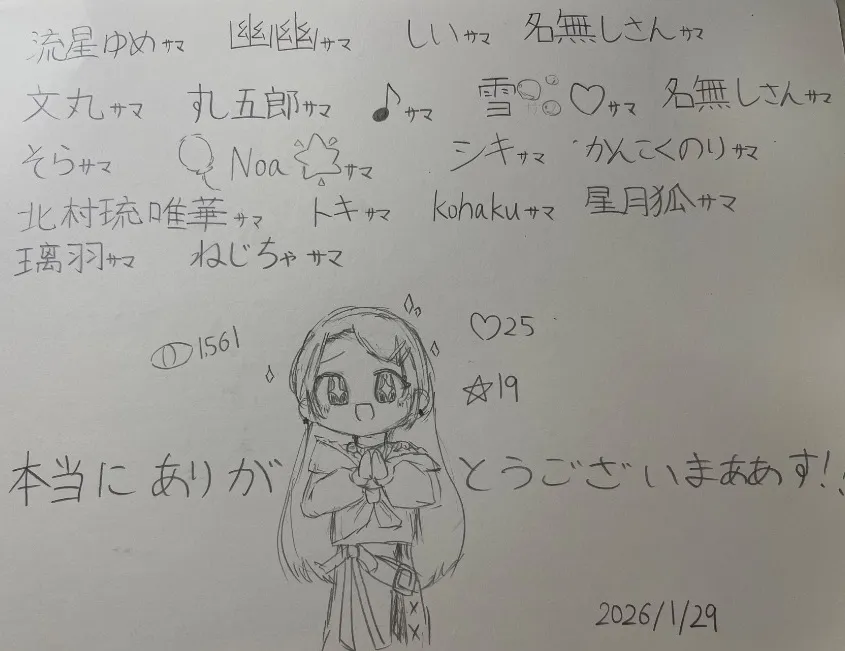 流星ゆめサマ 幽幽サマ しいサマ 名無しさんサマ
文丸サマ 丸五郎サマ ♪サマ 雪♡サマ 名無しさんサマ
そらサマ Noaサマ シキサマ かんこくのりサマ
北村琉唯華サマ トキサマ kohakuサマ 星月狐サマ
璃羽サマ ねじちゃサマ
1561 ♡25
☆19
本当にありがとうございまああす!!
2026/1/29